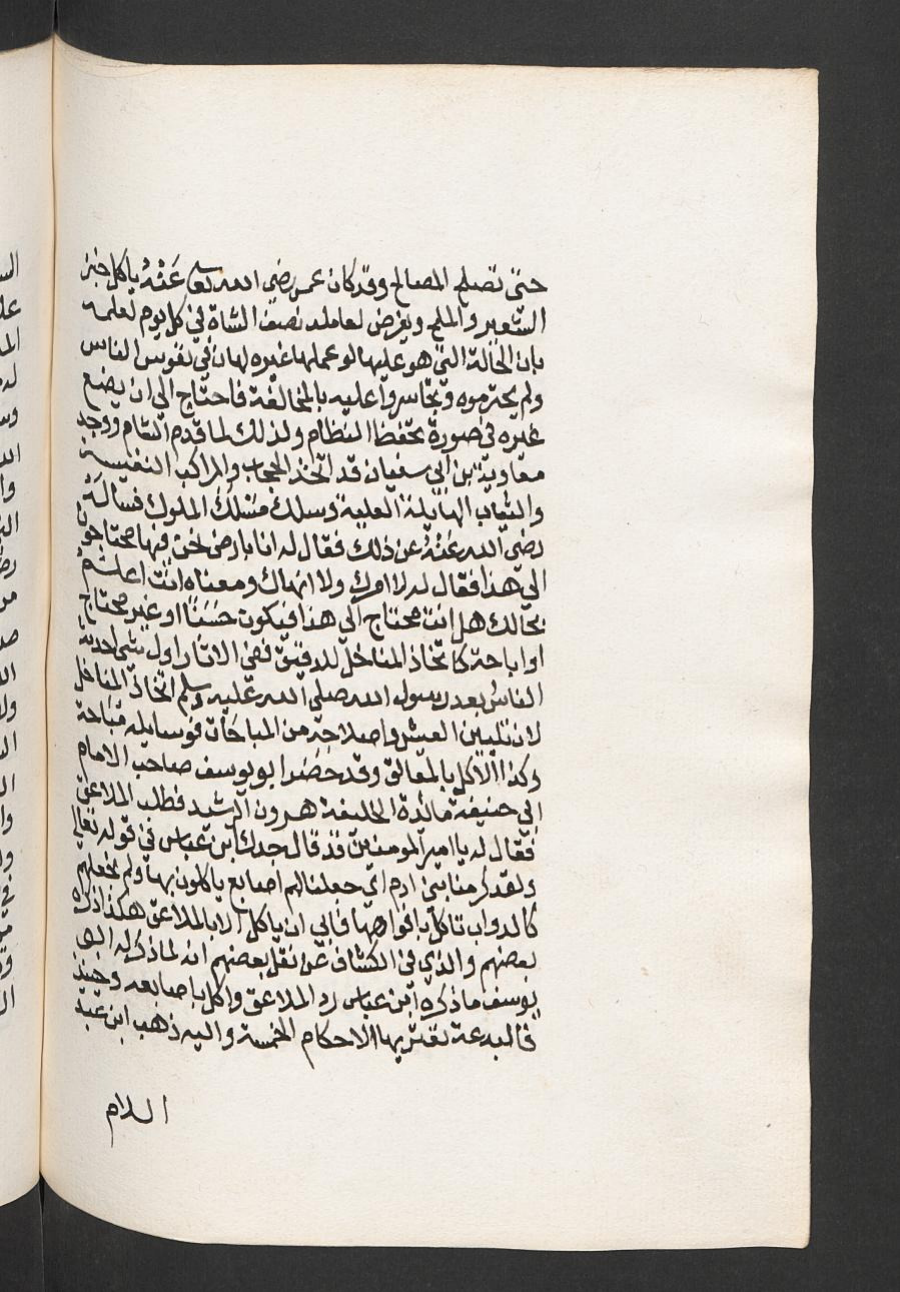 حتى تصلح المصالح وقد كان عمر رضي الله تعالى عَنْهُ ياكل خبز
الشعير والملح ويفرض لعامله نصف الشاة في كل يوم لعلمه
بان الحالة التي هو عليها لو عملها غيره لهان في نفوس الناس
ولم يحترموه وتجاسروا عليه بالمخالفة فاحتاج الى ان يضع
غيره في صورة تحفظ النظام ولذلك لما قدم الشام ووجد
معاوية بن ابي سفيان قد اتخذ الحجاب والمراكب النفيسة
والثياب الهايلة العلية وسلك مسْلَكَ الملوك فسالَهُ
رضي الله عَنْهُ عن ذلك فقال له انا بارض نحن فيها محتاجون
الى هذا فقال له لا امرك ولا انهاك ومعناه انت اعلم
بحالك هل انت محتاج الى هذا فيكون حَسَنًا او غير محتاج
او اباحة كاتخاذ المناخل للدقيق ففي الاثار اول شي احدثه
الناسُ بعد رسول الله صلى الله عليه وسلم اتخاذ المناخل
لان تليين العيش واصلاحه من المباحات فوسايله مباحة
وكذا الاكل بالمعالق وقد حضر ابو يوسف صاحب الامام
ابي حنيفة مائدة الخليفة هرون الرشيد فطلب الملاعق
فقال له يا امير المومنين قد قال جدك ابن عباس في قوله تعالى
ولقد كرمنا بني ادم اي جعلنا لهم اصابع ياكلون بها ولم نجعلهم
كالدواب تاكل بافواهها فابى ان ياكل الا بالملاعق هكذا ذكره
بعضهم والذي في الكشاف عن نقل بعضهم انه لما ذكر له ابو
يوسف ما ذكره ابن عباس رد الملاعق واكل باصابعه وحينئذ
فالبدعة تعتريها الاحكام الخمسة واليه ذهب ابن عبد
السلام